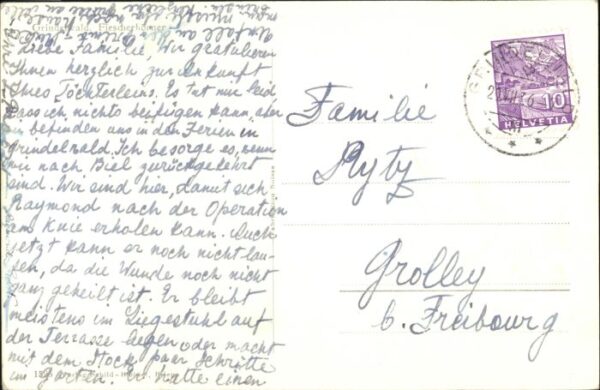 Grindelwald, Fiescherhörner
Liebe Familie, Wir gratulieren
Ihnen herzlich zur Ankunft
Ihres Töchterleins. Es tut mir leid
dass ich nichts beifügen kann, aber
wir befinden uns in den Ferien in
Grindelwald. Ich besorge es, wenn
wir nach Biel zurückgekehrt
sind. Wir sind hier, damit sich
Raymond nach der Operation
am Knie erholen kann. Auch
jetzt kann er noch nicht lau-
fen, da die Wunde noch nicht
ganz geheilt ist. Er bleibt
meistens im Liegestuhl auf
der Terrasse liegen oder macht
mit dem Stock paar Schritte
im Garten. Er hatte einen
Unfall
Familie
Rytz
Grolley
b. Freibourg
10
HELVETIA